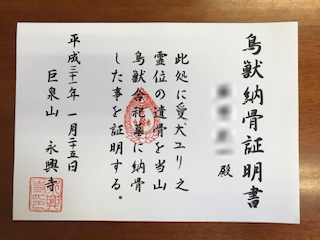 鳥獣納骨証明書
殿
此処に愛犬ユリ之
霊位の遺骨を当山
鳥獣合祀墓に納骨
した事を証明する。
平成三十一年一月二十五日
巨泉山 永興寺